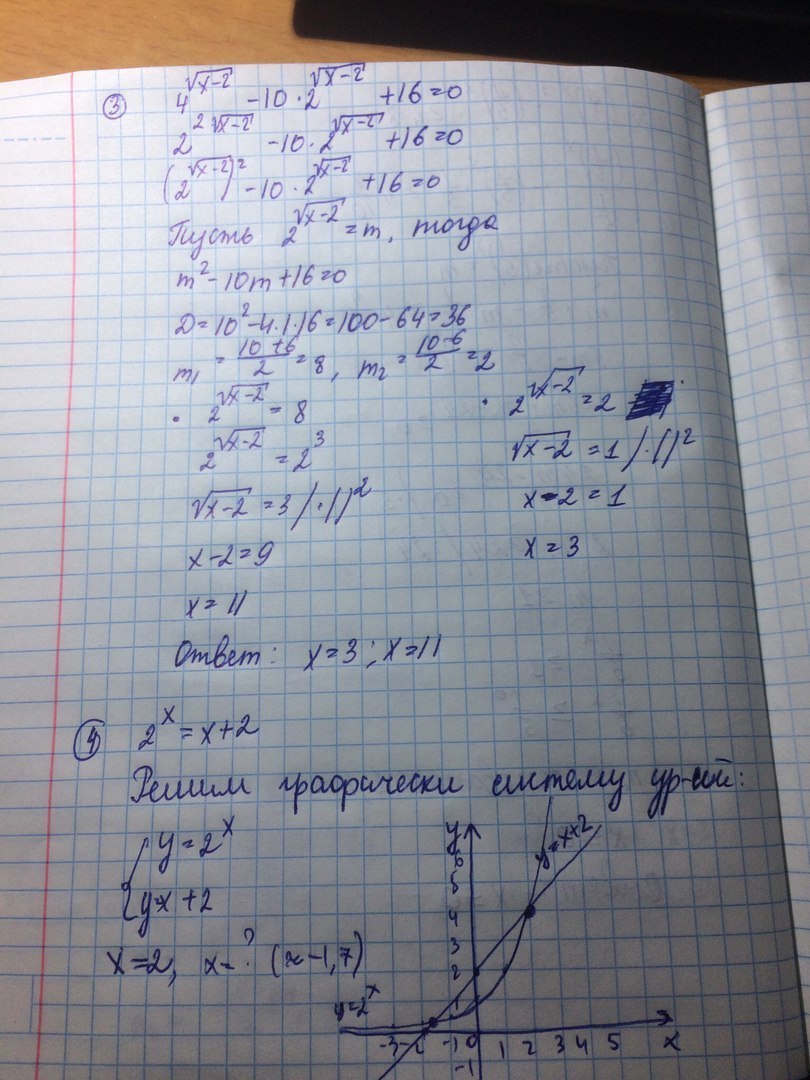 ③ 4^√(x-2) -10·2^√(x-2) +16=0
2^2√(x-2) -10·2^√(x-2) +16=0
(2^√(x-2))² -10·2^√(x-2) +16=0
Пусть 2^√(x-2) = m, тогда
m²-10m+16=0
D=10²-4·1·16=100-64=36
m₁ = (10+6)/2 = 8, m₂ = (10-6)/2 = 2
· 2^√(x-2) = 8
2^√(x-2) = 2³
√(x-2) = 3 /·()²
x-2=9
x=11
· 2^√(x-2) = 2
√(x-2) = 1 /·()²
x-2=1
x=3
Ответ: x=3; x=11
④ 2^x = x+2
Решим графически систему ур-ий:
{ y=2^x
y=x+2
x=2, x-? (≈-1,7)
y
y=x+2
6
5
4
3
2
1
y=2^x
-3 -2 -1 0 1 2 3 4 5 x
-1